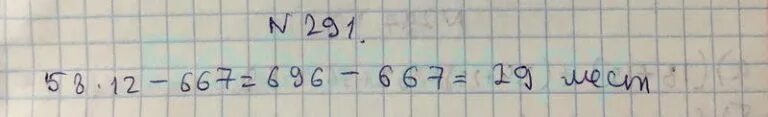 N 291.
58 · 12 - 667 = 696 - 667 = 29 мест